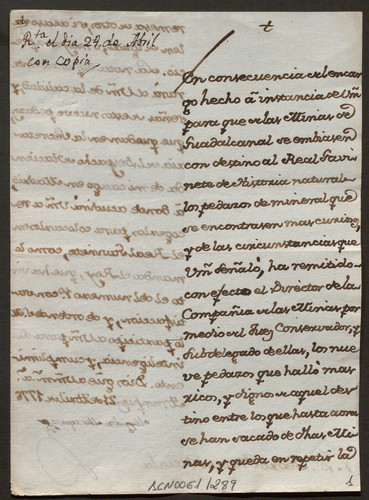 t
R.ta el dia 29 de Abril
con copia
En consecuencia del encar
go hecho á instancia de Vm
para que de las Minas de
Guadalcanal se embiasen
con destino al Real Gavi
nete de Historia natural
los pedazos de mineral que
se encontrasen mas curiosos,
y de las circunstancias que
Vm señaló, ha remitido
con efecto el Director de la
Compañia de las Minas por
medio del Juez Conservador, y
Subdelegado de ellas, los nue
ve pedazos que halló mas
ricos, y dignos de aquel des
tino entre los que hasta aora
se han sacado de dhas Mi
nas, y queda en repetir la
ACN0061/289
1